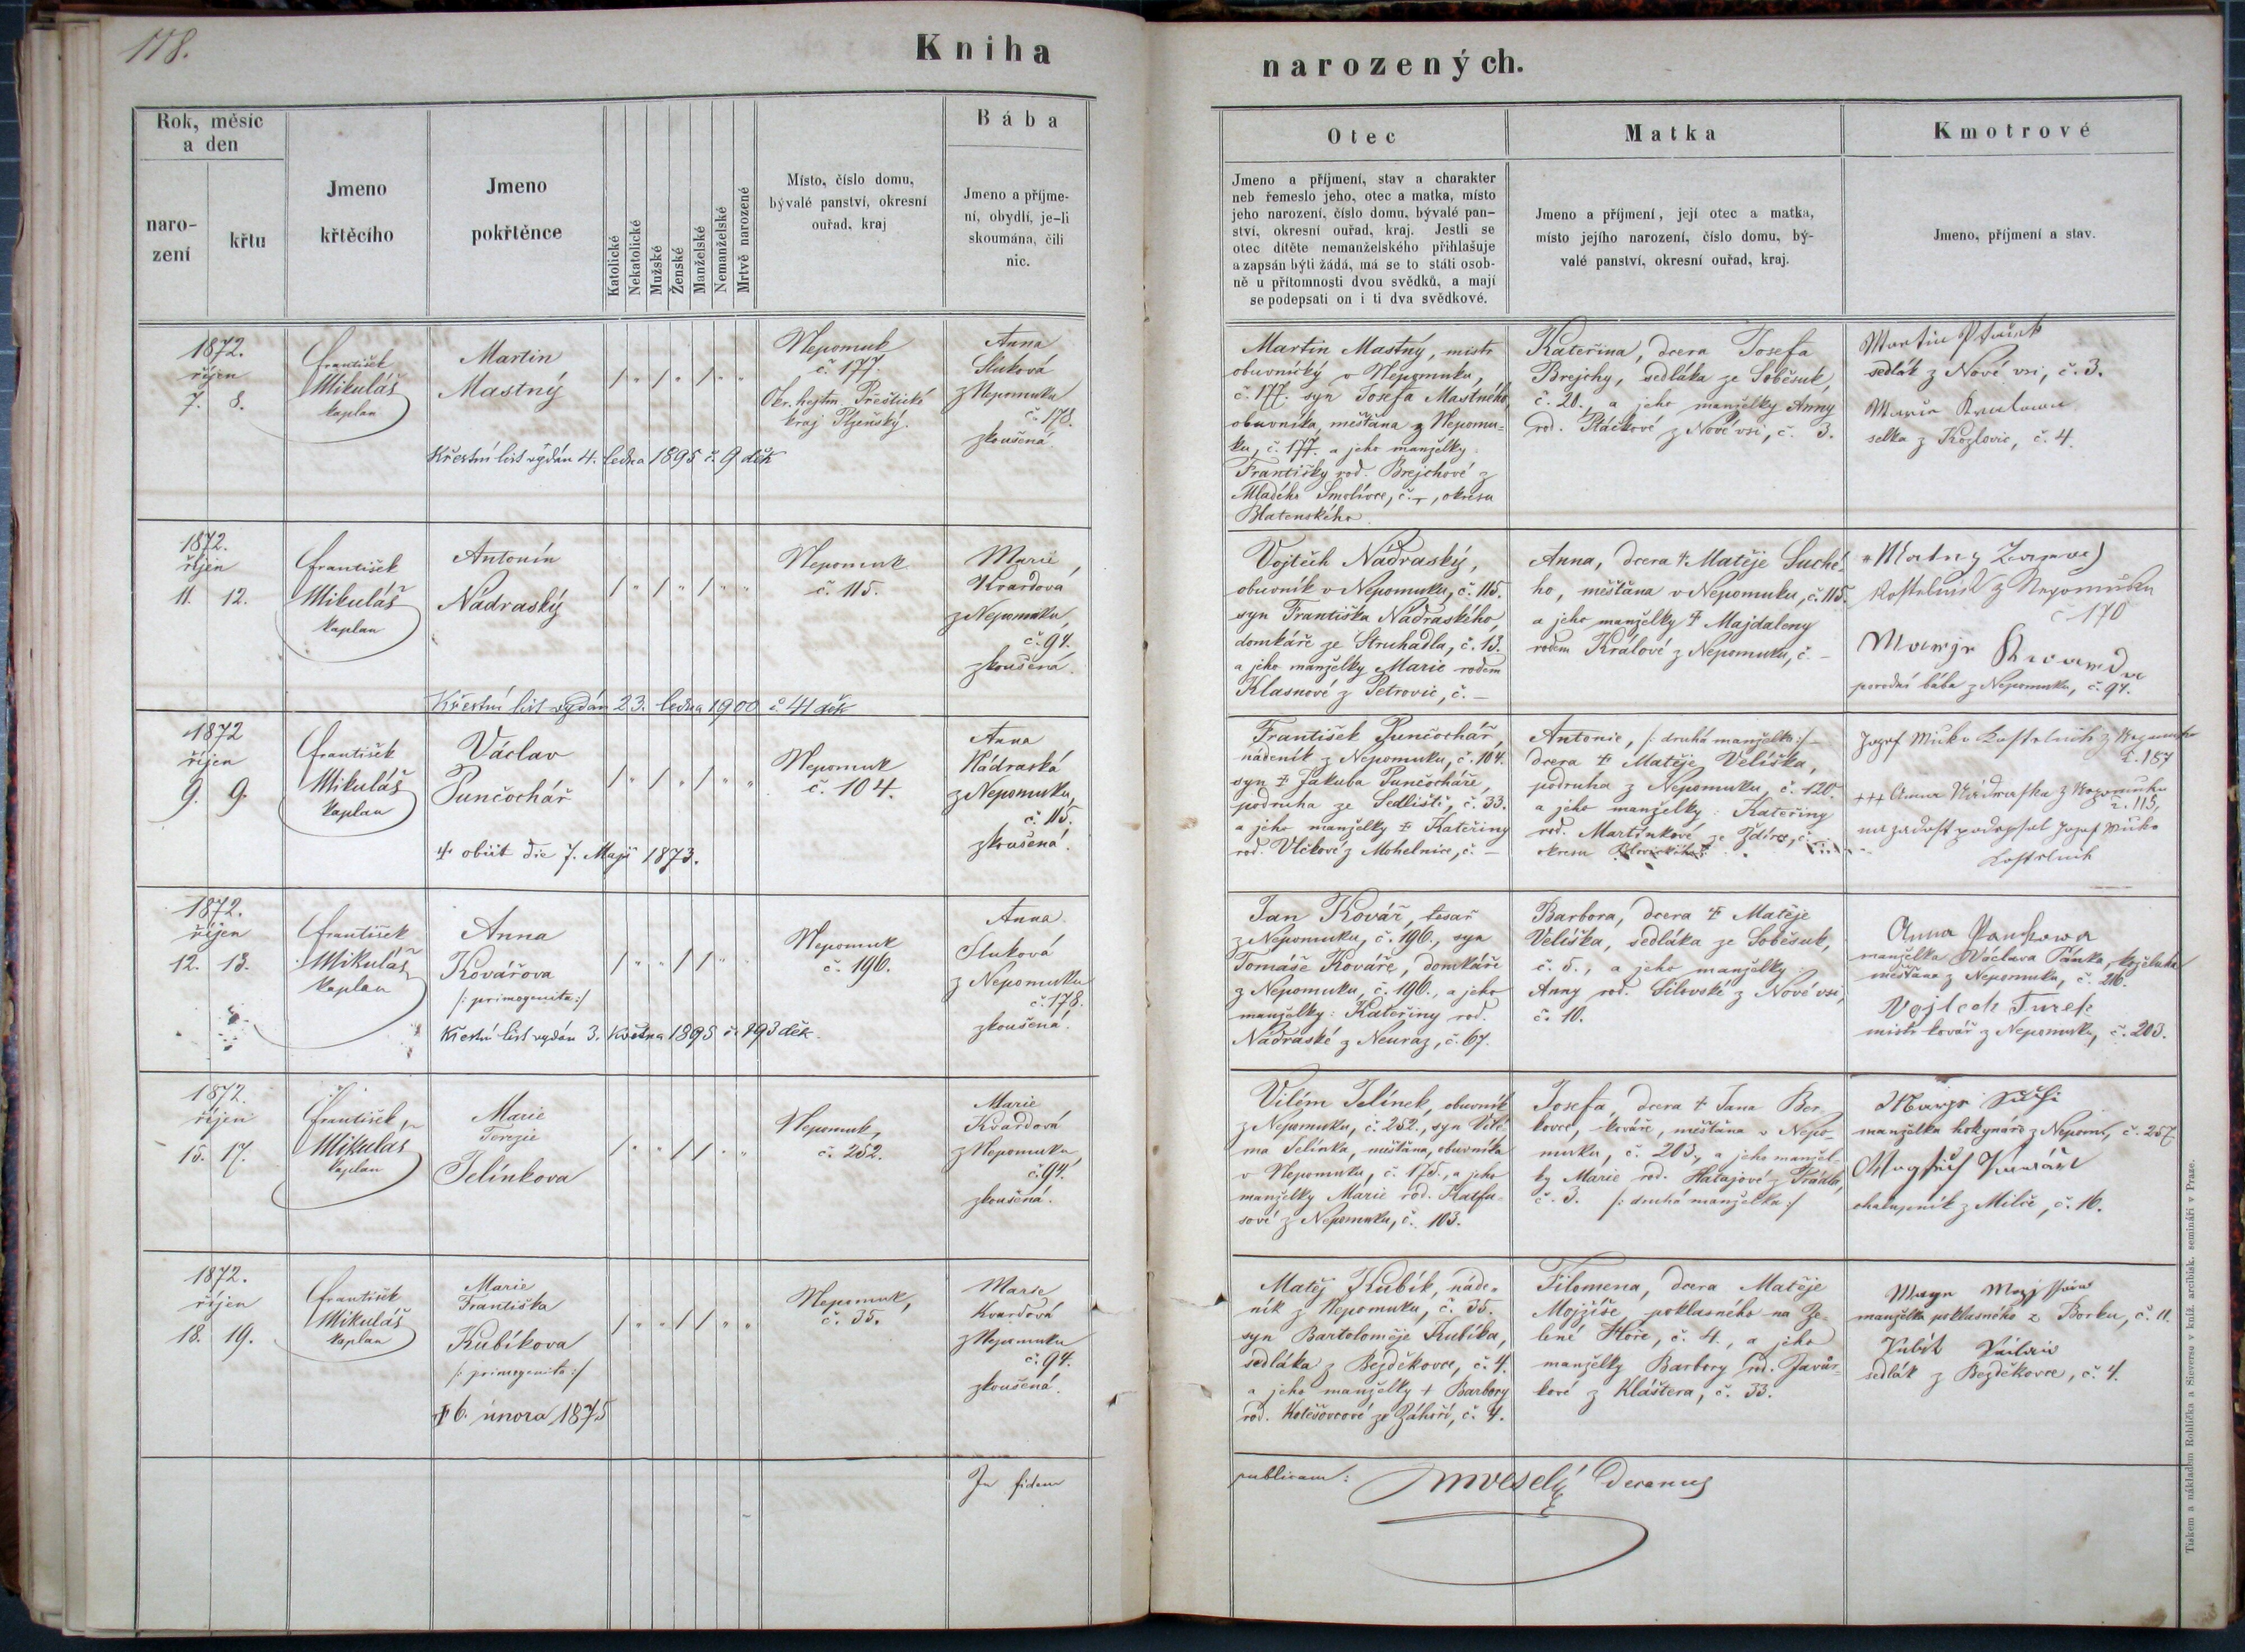 118.
Kniha
narozených.
Rok, měsíc
a den
naro-
zení
křtu
Jmeno
křtěcího
Jmeno
pokřtěnce
Katolické
Nekatolické
Mužské
Ženské
Manželské
Nemanželské
Mrtvě narozené
Místo, číslo domu,
bývalé panství, okresní
ouřad, kraj
Bába
Jmeno a příjme-
ní, obydlí, je-li
skoumána, čili
nic.
Otec
Jmeno a příjmení, stav a charakter
neb řemeslo jeho, otec a matka, místo
jeho narození, číslo domu, bývalé pan-
ství, okresní ouřad, kraj. Jestli se
otec dítěte nemanželského přihlašuje
a zapsán býti žádá, má se to státi osob-
ně u přítomnosti dvou svědků, a mají
se podepsati on i ti dva svědkové.
Matka
Jmeno a příjmení, její otec a matka,
místo jejího narození, číslo domu, bý-
valé panství, okresní ouřad, kraj.
Kmotrové
Jmeno, příjmení a stav.
1872.
říjen
7. 8.
František
Mikuláš
kaplan
Martin
Mastný
/ " / " / " "
Nepomuk
č. 177.
Okr. hejtm. Přeštické
kraj Plzeňský.
Anna
Sluková
z Nepomuku
č. 178.
zkoušená
Křestní list vydán 4. ledna 1895 č. 9 děk
Martin Mastný, mistr
obuvnický v Nepomuku,
č. 177. syn Josefa Mastného,
obuvníka, měšťana z Nepomu-
ku, č. 177. a jeho manželky
Františky rod. Brejchové z
Mladého Smolivce, č. -, okresu
Blatenského.
Kateřina, dcera Josefa
Brejchy, sedláka ze Soběsuk,
č. 20., a jeho manželky Anny
rod. Ptáčkové z Nové vsi, č. 3.
Martin Ptáček
sedlák z Nové vsi, č. 3.
Marie
selka z Kozlovic, č. 4.
1872.
říjen
11. 12.
František
Mikuláš
kaplan
Antonín
Nádraský
/ " / " / " "
Nepomuk
č. 115.
Marie
Kvardová
z Nepomuku,
č. 94.
zkoušená.
Křestní list vydán 23. ledna 1900 č. 41 děk
Vojtěch Nádraský,
obuvník v Nepomuku, č. 115.
syn Františka Nádraského,
domkáře ze Struhadla, č. 13.
a jeho manželky Marie rodem
Klasnové z Petrovic, č. -
Anna, dcera † Matěje Suché-
ho, měšťana v Nepomuku, č. 115.
a jeho manželky † Majdaleny
rodem Králové z Nepomuku, č. -
Kostelník z Nepomuku
č 170
Marije Kvarda
porodní bába z Nepomuku, č. 94.
1872
říjen
9. 9.
František
Mikuláš
kaplan
Václav
Punčochář
† obiit die 7. Maji 1873.
/ " / " / " "
Nepomuk
č. 104.
Anna
Nádraská
z Nepomuku,
č. 115.
zkoušená.
František Punčochář,
nádeník z Nepomuku, č. 104.
syn † Jakuba Punčocháře,
podruha ze Sedliště, č. 33.
a jeho manželky † Kateřiny
rod. Vlčkové z Mohelnice, č. -
Antonie, /: druhá manželka :/
dcera † Matěje Velíška,
podruha z Nepomuku, č. 120.
a jeho manželky: Kateřiny
rod. Martínkové ze Ždírce, č. -
okresu
Jozef Miko Kostelnik z Nepomuku
č. 187
+++ Anna Nádraska z Nepomuku
č. 115,
na zadost podepsal Jozef Miko
Kostelnik
1872.
říjen
12. 13.
František
Mikuláš
kaplan
Anna
Kovářova
/: primogenita :/
/ " " / / " "
Nepomuk
č. 196.
Anna
Sluková
z Nepomuku
č. 178.
zkoušená.
Křestní list vydán 3. května 1895 č. 193 děk.
Jan Kovář, tesař
z Nepomuku, č. 196., syn
Tomáše Kováře, domkáře
z Nepomuku, č. 196., a jeho
manželky: Kateřiny rod.
Nádraské z Neuraz, č. 67.
Barbora, dcera † Matěje
Velíška, sedláka ze Soběsuk,
č. 5., a jeho manželky:
Anny rod. Silovské z Nové vsi,
č. 10.
Anna Pankowa
manželka Václava Panka, koželuha
měšťana z Nepomuku, č. 216.
Vojtech Turek
mistr kovář z Nepomuku, č. 203.
1872.
říjen
15. 17.
František
Mikuláš
kaplan
Marie
Terezie
Jelínkova
/ " " / / " "
Nepomuk,
č. 252.
Marie
Kvardová
z Nepomuku,
č. 94.
zkoušená.
Vilém Jelínek, obuvník
z Nepomuku, č. 252., syn Vilé-
ma Jelínka, měšťana, obuvníka
v Nepomuku, č. 175., a jeho
manželky Marie rod. Hatfa-
sové z Nepomuku, č. 103.
Josefa, dcera † Jana Ber-
kovce, kováře, měšťana v Nepo-
muku, č. 203., a jeho manžel-
ky Marie rod. Hatajové z Prádla,
č. 3. /: druhá manželka :/
manželka hokynáře z Nepom., č. 257
chalupník z Milče, č. 16.
1872.
říjen
18. 19.
František
Mikuláš
kaplan
Marie
Františka
Kubíkova
/: primogenita :/
† 6. února 1875
/ " " / / " "
Nepomuk,
č. 35.
Marie
Kvardová
z Nepomuku
č. 94.
zkoušená.
Matěj Kubík, náde-
ník z Nepomuku, č. 35.
syn Bartoloměje Kubíka,
sedláka z Bezděkovce, č. 4.
a jeho manželky † Barbory
rod. Kotěšovcové ze Záhoří, č. 4.
Filomena, dcera Matěje
Mojžíše, poklasného na Ze-
lené Hoře, č. 4., a jeho
manželky Barbory rod. Javůr-
kové z Kláštera, č. 33.
manželka poklasného z Borku, č. 11.
Kubík
sedlák z Bezděkovce, č. 4.
In fidem
publicam: Veselý Decanus
Tiskem a nákladem Rohlíčka a Sieversa v kníž. arcibisk. semináři v Praze.